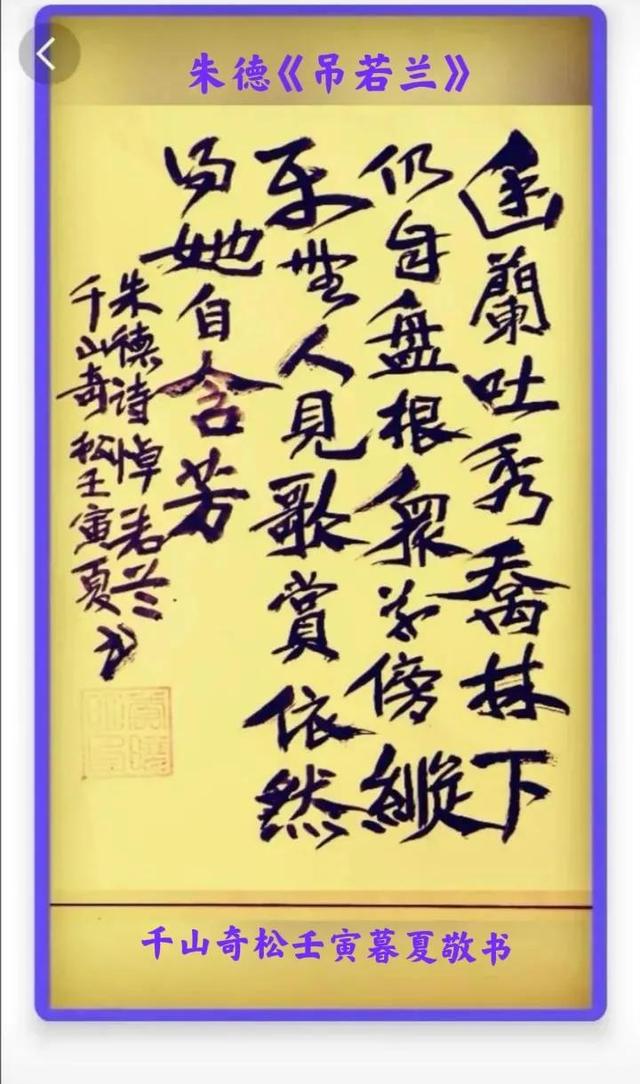 朱德《吊若兰》
幽蘭吐秀喬林下
仍自盘根眾草傍縱
無人見歌賞依然
她自含芳
朱德诗悼若兰
千山奇松壬寅夏书
千山奇松壬寅暮夏敬书